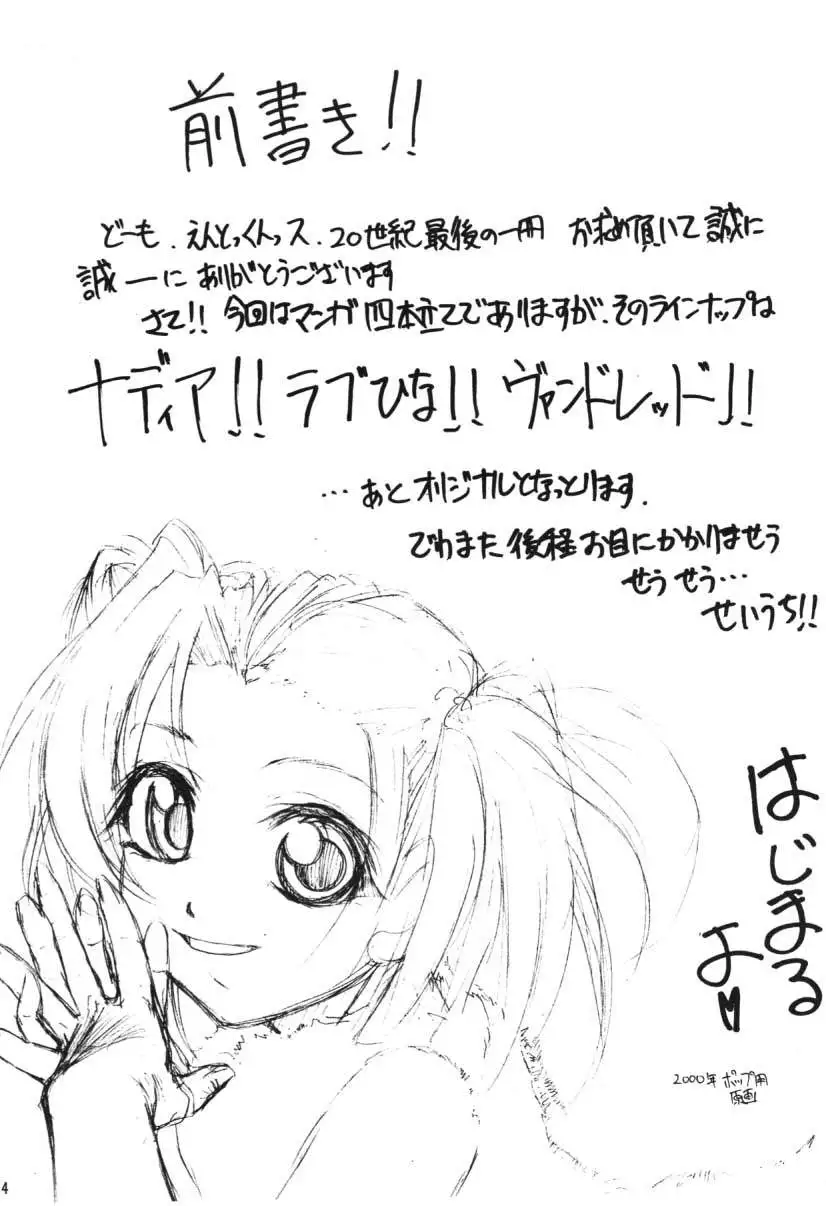 前書き!!
どーも、えんとっくんっス、20世紀最後の一冊 お求め頂いて誠に
誠一にありがとうございます
さて!! 今回はマンガ四本立てでありますが、そのラインナップは
ナディア!! ラブひな!! ヴァンドレッド!!
…あとオリジナルとなっとります。
でわまた後程お目にかかりませう
せう せう…
せいうち!!
はじまる
よ♥
2000年 ポップ用
原画
4